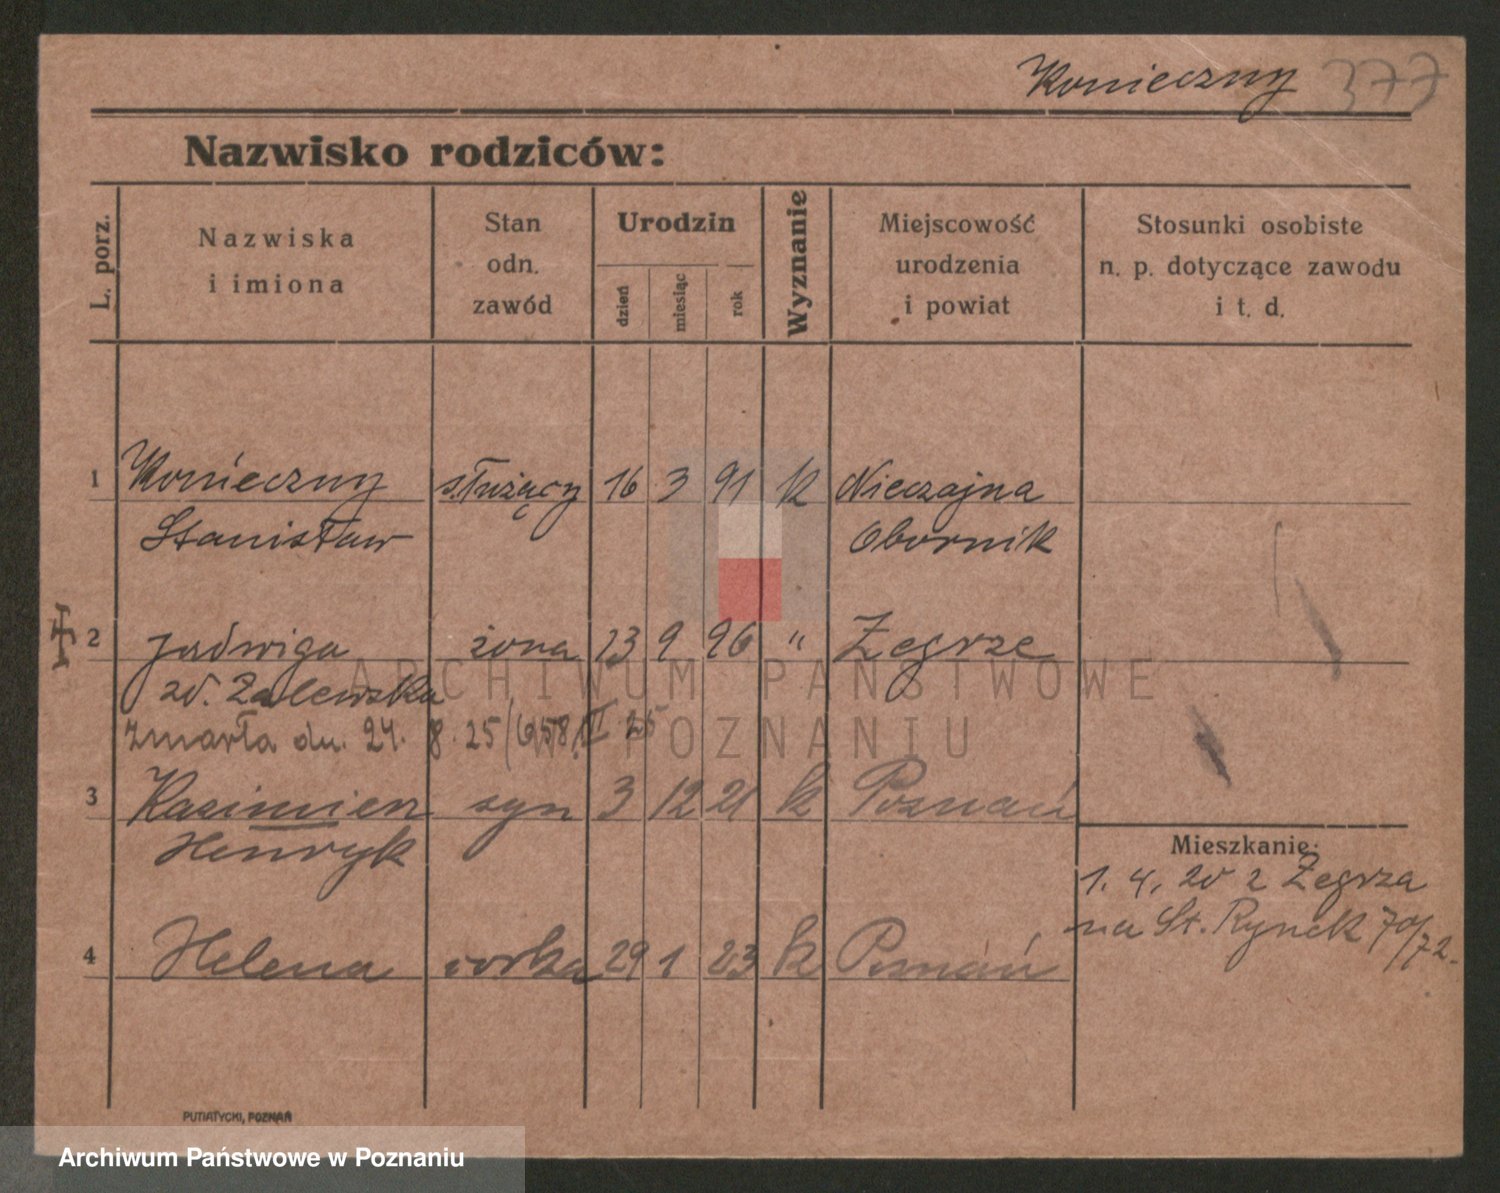 Konieczny 377
Nazwisko rodziców:
L. porz.
Nazwiska
i imiona
Stan
odn.
zawód
Urodzin
dzień
miesiąc
rok
Wyznanie
Miejscowość
urodzenia
i powiat
Stosunki osobiste
n. p. dotyczące zawodu
i t. d.
1 Konieczny służący 16 3 91 k Nieczajna
Stanisław Obornik
2 Jadwiga żona 23 9 96 " Zegrze
zd. Zalewska
zmarła dn. 24. 8. 25/658/II 25
3 Kazimierz syn 3 12 21 k Poznań
Henryk
4 Helena córka 29 1 23 k Poznań
Mieszkanie:
1. 4. 20 z Zegrza
na St. Rynek 70/72.
PUTIATYCKI, POZNAŃ
ARCHIWUM PAŃSTWOWE
W POZNANIU
Archiwum Państwowe w Poznaniu